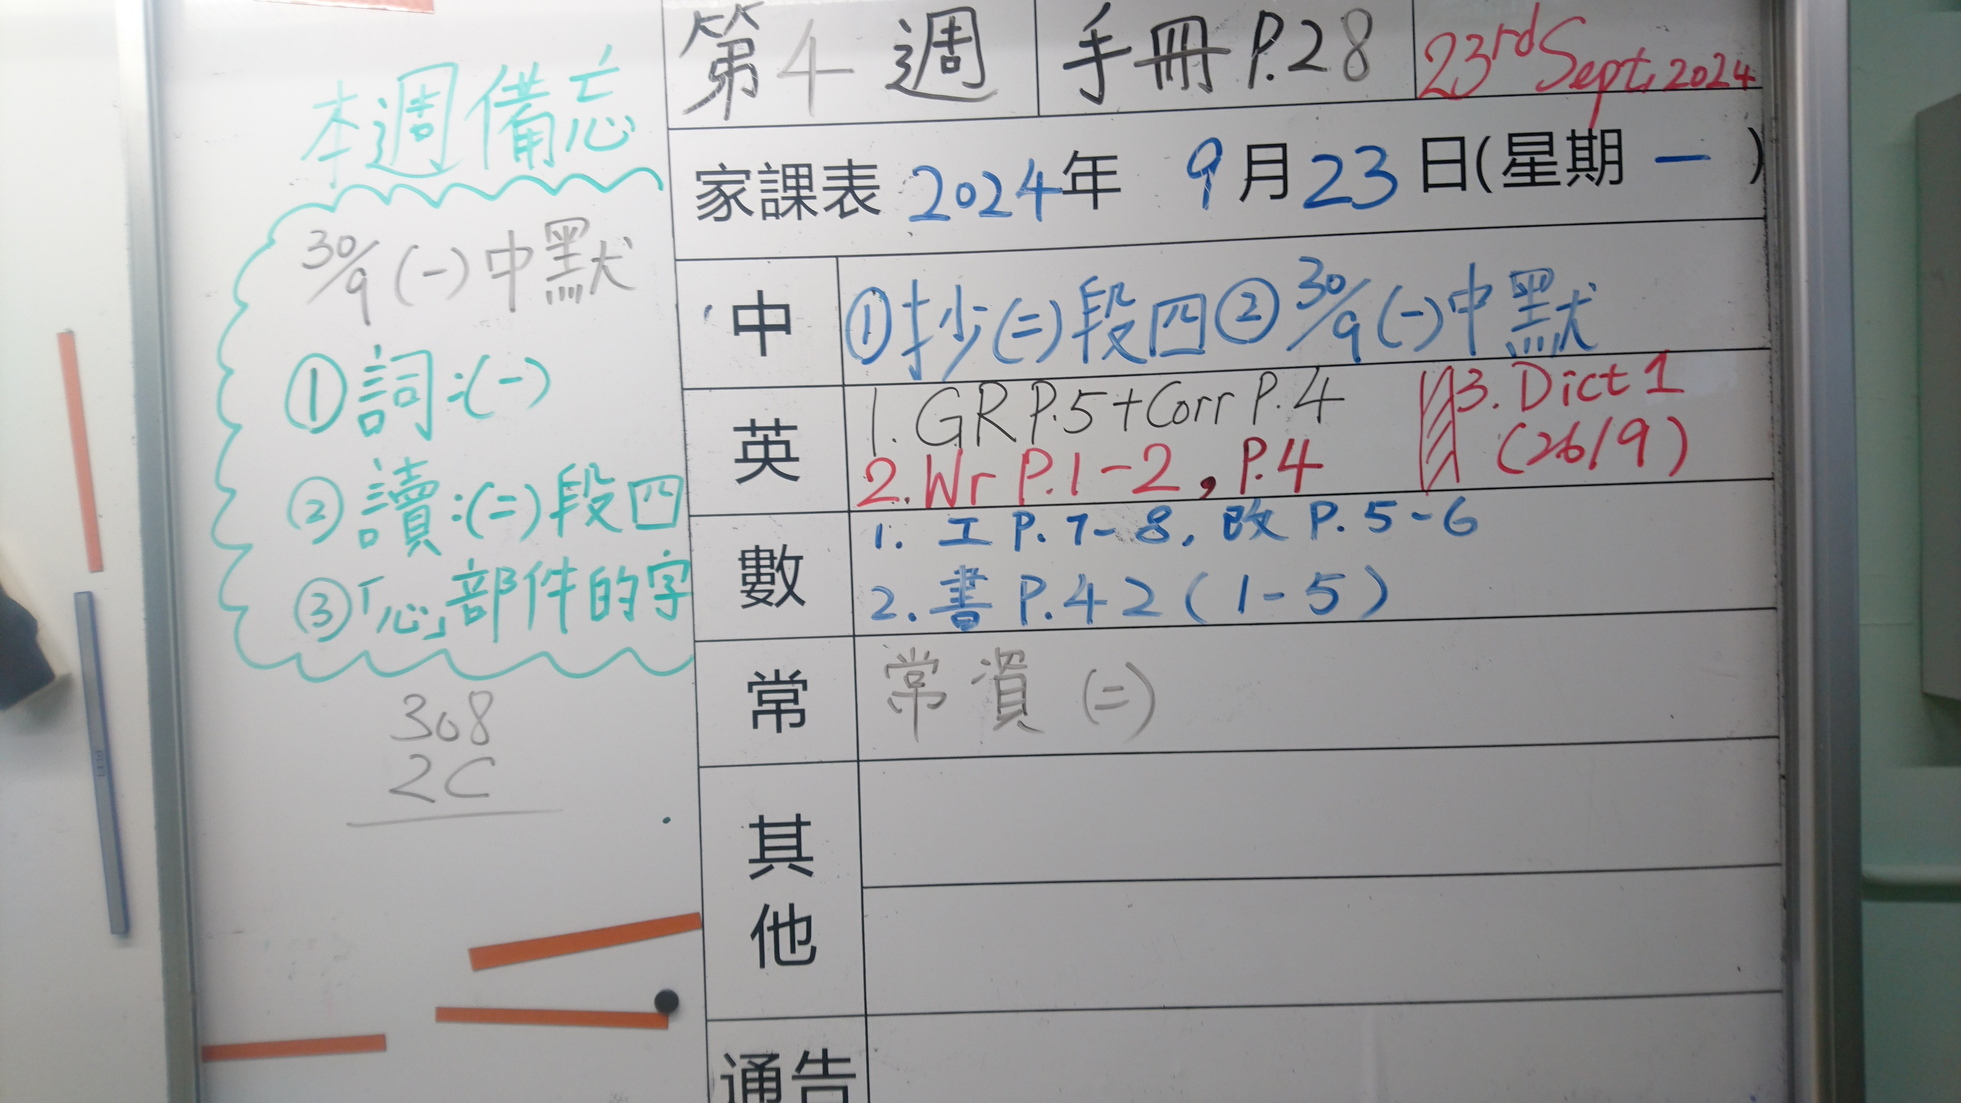 本週備忘
30/9 (一) 中默
①詞:(一)
②讀:(二)段四
③「心」部件的字
308
2C
第4週 手冊 P.28 23rd Sept, 2024
家課表 2024年 9月23日(星期一)
中 ①抄(二)段四②30/9(一)中默
英 1. GR P.5+Corr P.4
2. Wr P.1-2, P.4
3. Dict 1
(26/9)
數 1. 工 P.7-8, 改 P.5-6
2. 書 P.42(1-5)
常 常資(二)
其他
通告